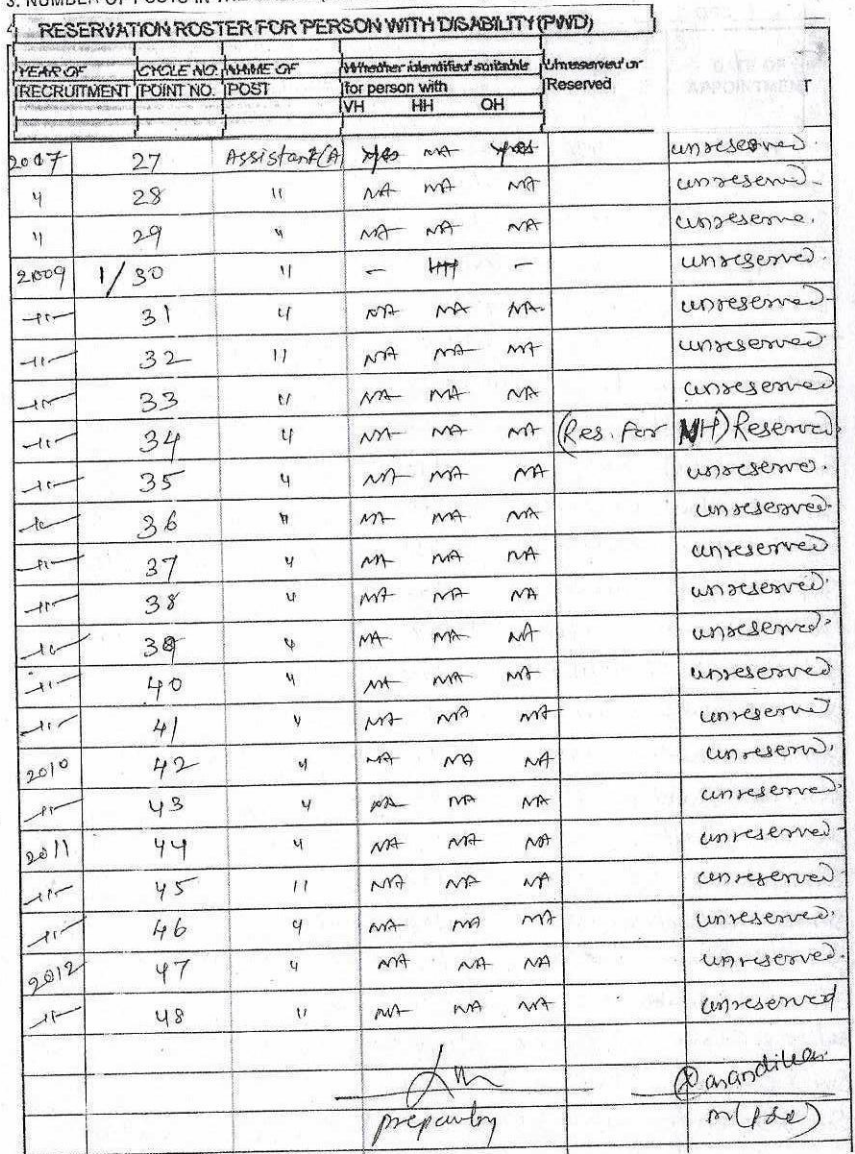 3. NUMBER OF POSTS IN
4
RESERVATION ROSTER FOR PERSON WITH DISABILITY (PWD)
YEAR OF CYCLE NO. NAME OF Whether identified suitable Unreserved or
RECRUITMENT POINT NO. POST for person with Reserved T
VH HH OH
2007 27 Assistant(A) Yes NA Yes unreserved.
" 28 " NA NA NA unreserved.
" 29 " NA NA NA unreserve.
2009 1/30 " - HH - unreserved.
-"- 31 " NA NA NA. unreserved.
-"- 32 " NA NA NA unreserved.
-"- 33 " NA NA NA unreserved
-"- 34 " NA NA NA (Res. For H) Reserved.
-"- 35 " NA NA NA unreserved.
-"- 36 " NA NA NA unreserved.
-"- 37 " NA NA NA unreserved
-"- 38 " NA NA NA unreserved.
-"- 39 " NA NA NA unreserved.
-"- 40 " NA NA NA unreserved
-"- 41 " NA NA NA unreserved
2010 42 " NA NA NA unreserved.
-"- 43 " NA NA NA unreserved.
2011 44 " NA NA NA unreserved.
-"- 45 " NA NA NA unreserved.
-"- 46 " NA NA NA unreserved.
2012 47 " NA NA NA unreserved.
-"- 48 " NA NA NA unreserved